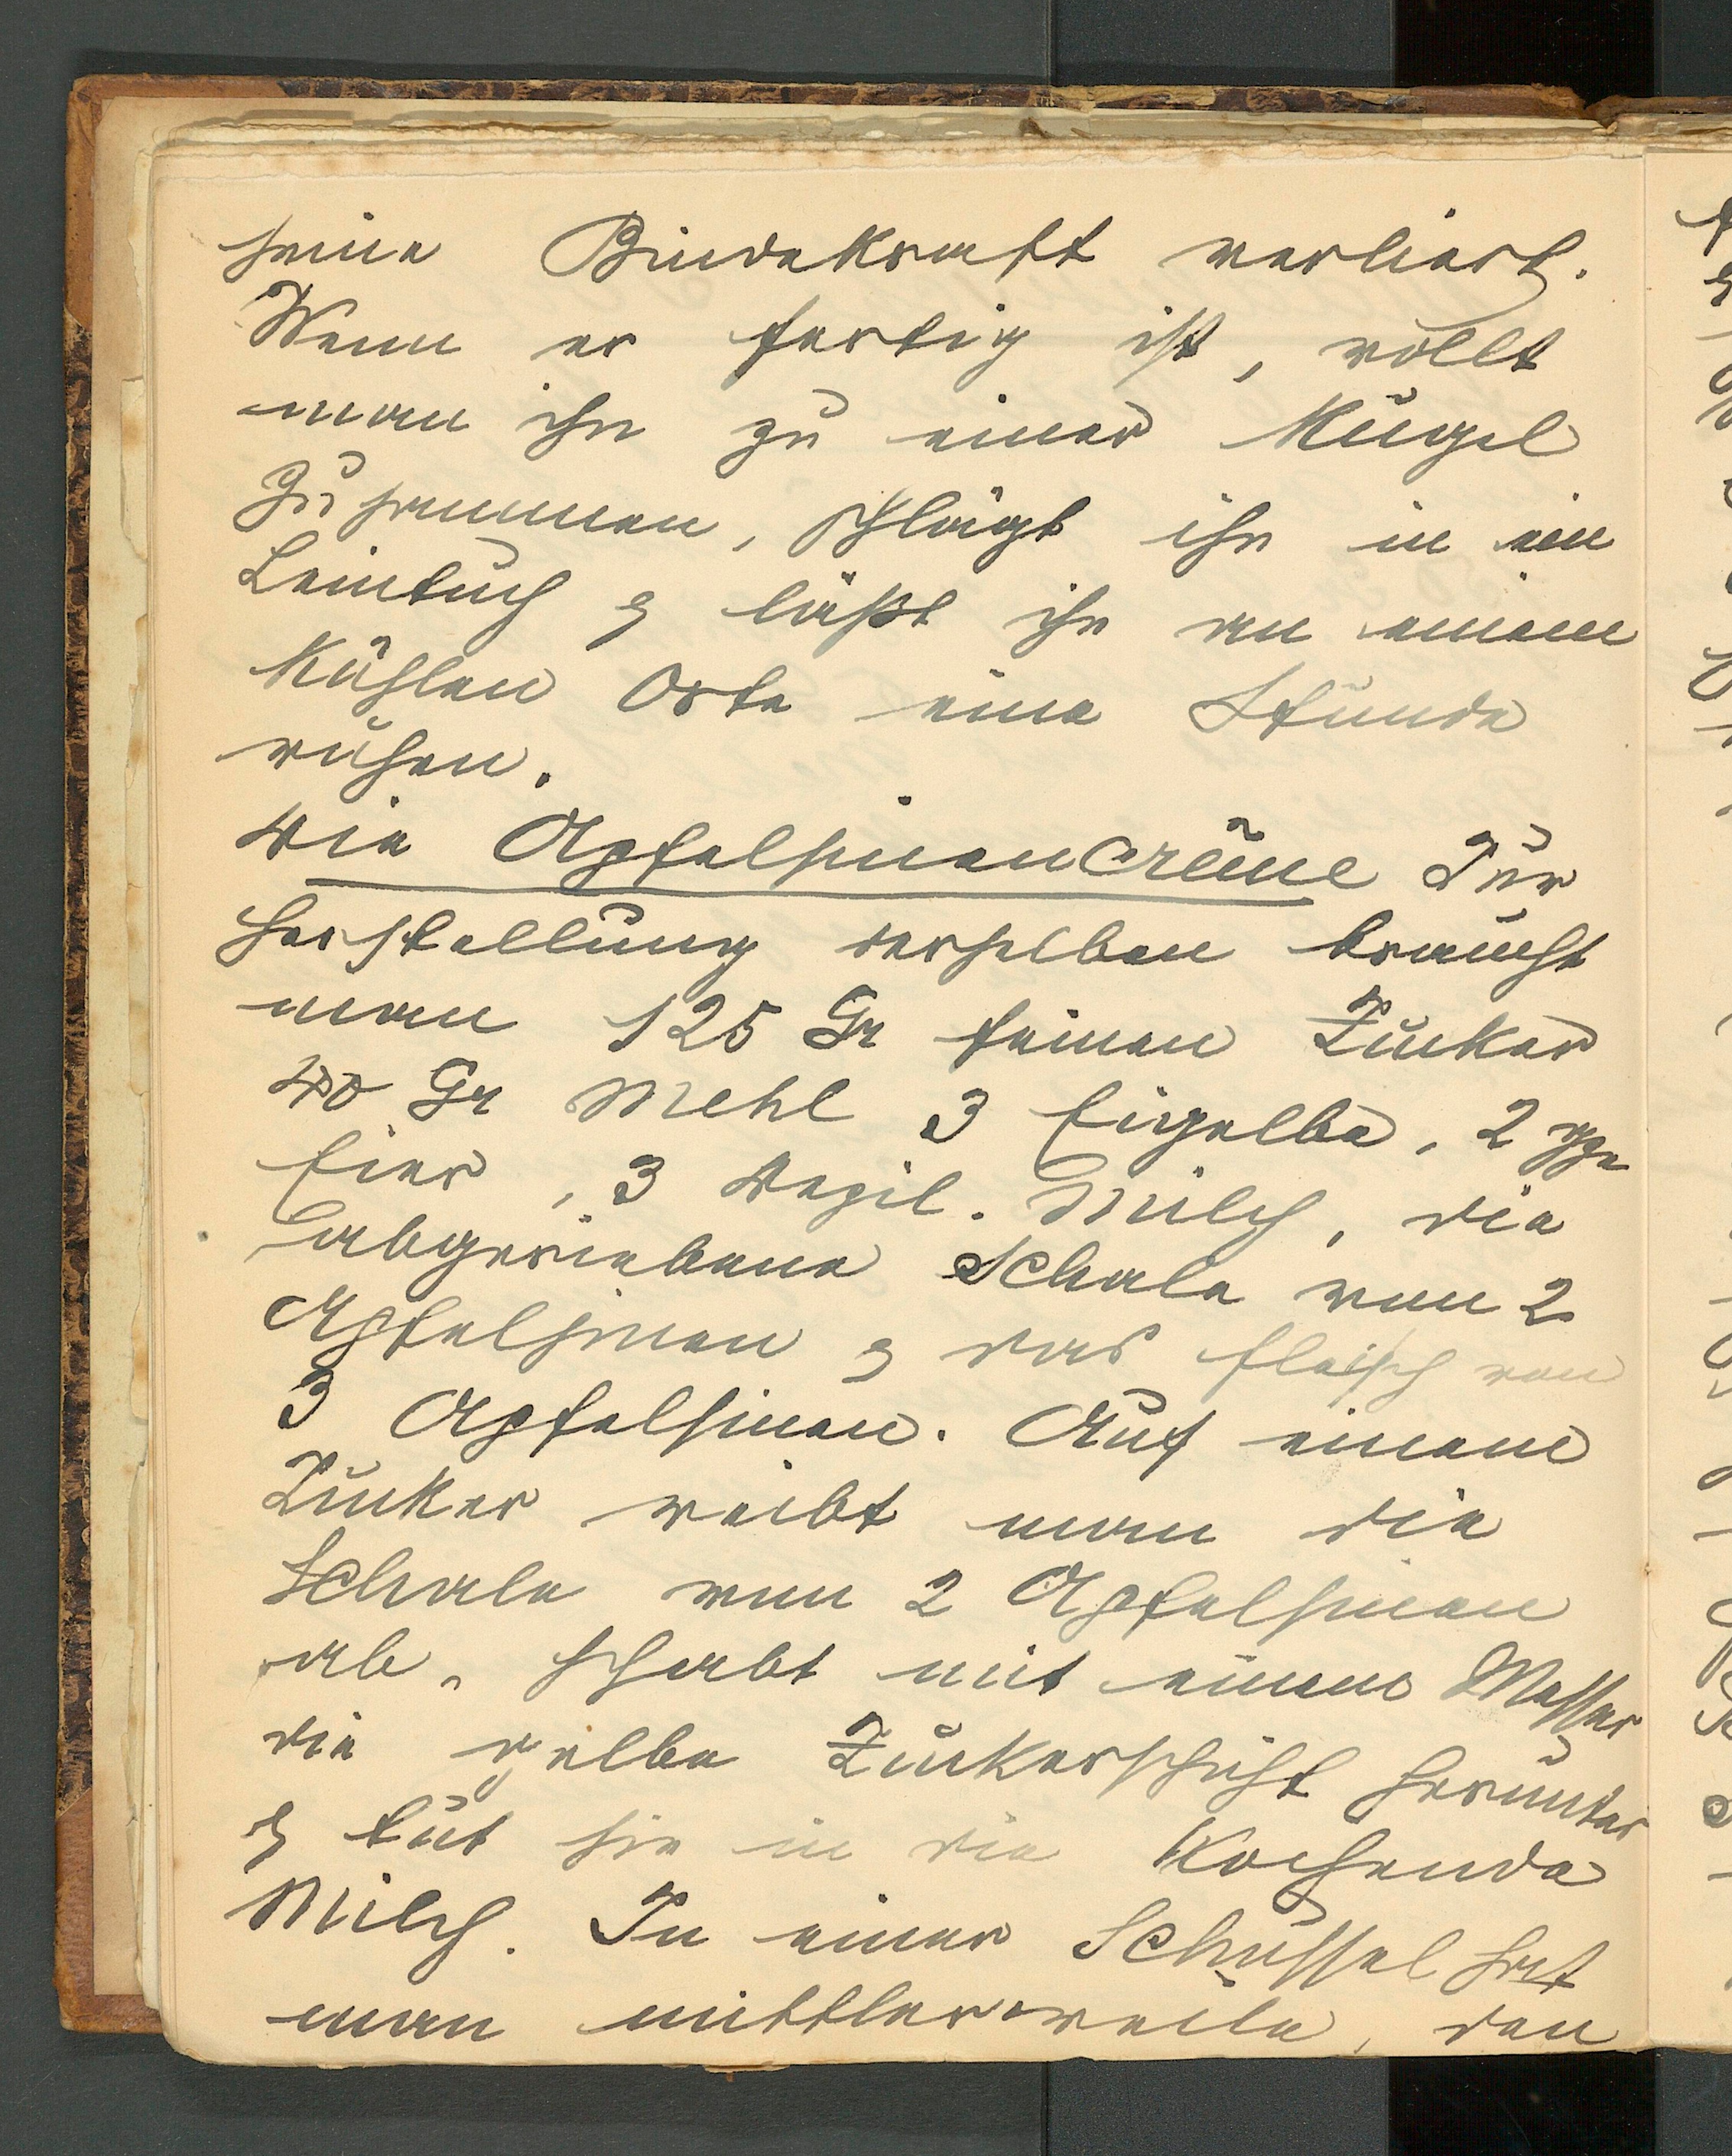 seine Bindekraft verliert.
Wenn er fertig ist, rollt
man ihn zu einer Kugel
zusammen, schlägt ihn in ein
Leintuch & läßt ihn an einem
kühlen Orte eine Stunde
ruhen.
Die Apfelsinencrême Zur
Herstellung derselben braucht
man 125 Gr feinen Zucker
40 Gr Mehl 3 Eigelbe, 2 gze
Eier, 3 Dezil. Milch, die
abgeriebene Schale von 2
Apfelsinen & das Fleisch von
3 Apfelsinen. Auf einem
Zucker reibt man die
Schale von 2 Apfelsinen
ab, schabt mit einem Messer
die gelbe Zuckerschicht herunter
& tut sie in die kochende
Milch. In einer Schüssel hat
man mittlerweile, den